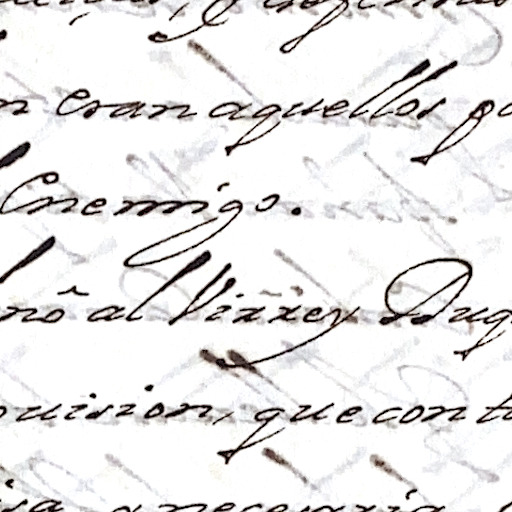 n eran aquellos
Enemigo.
nō al Virrey Duq
uision, que con t
a necesaria